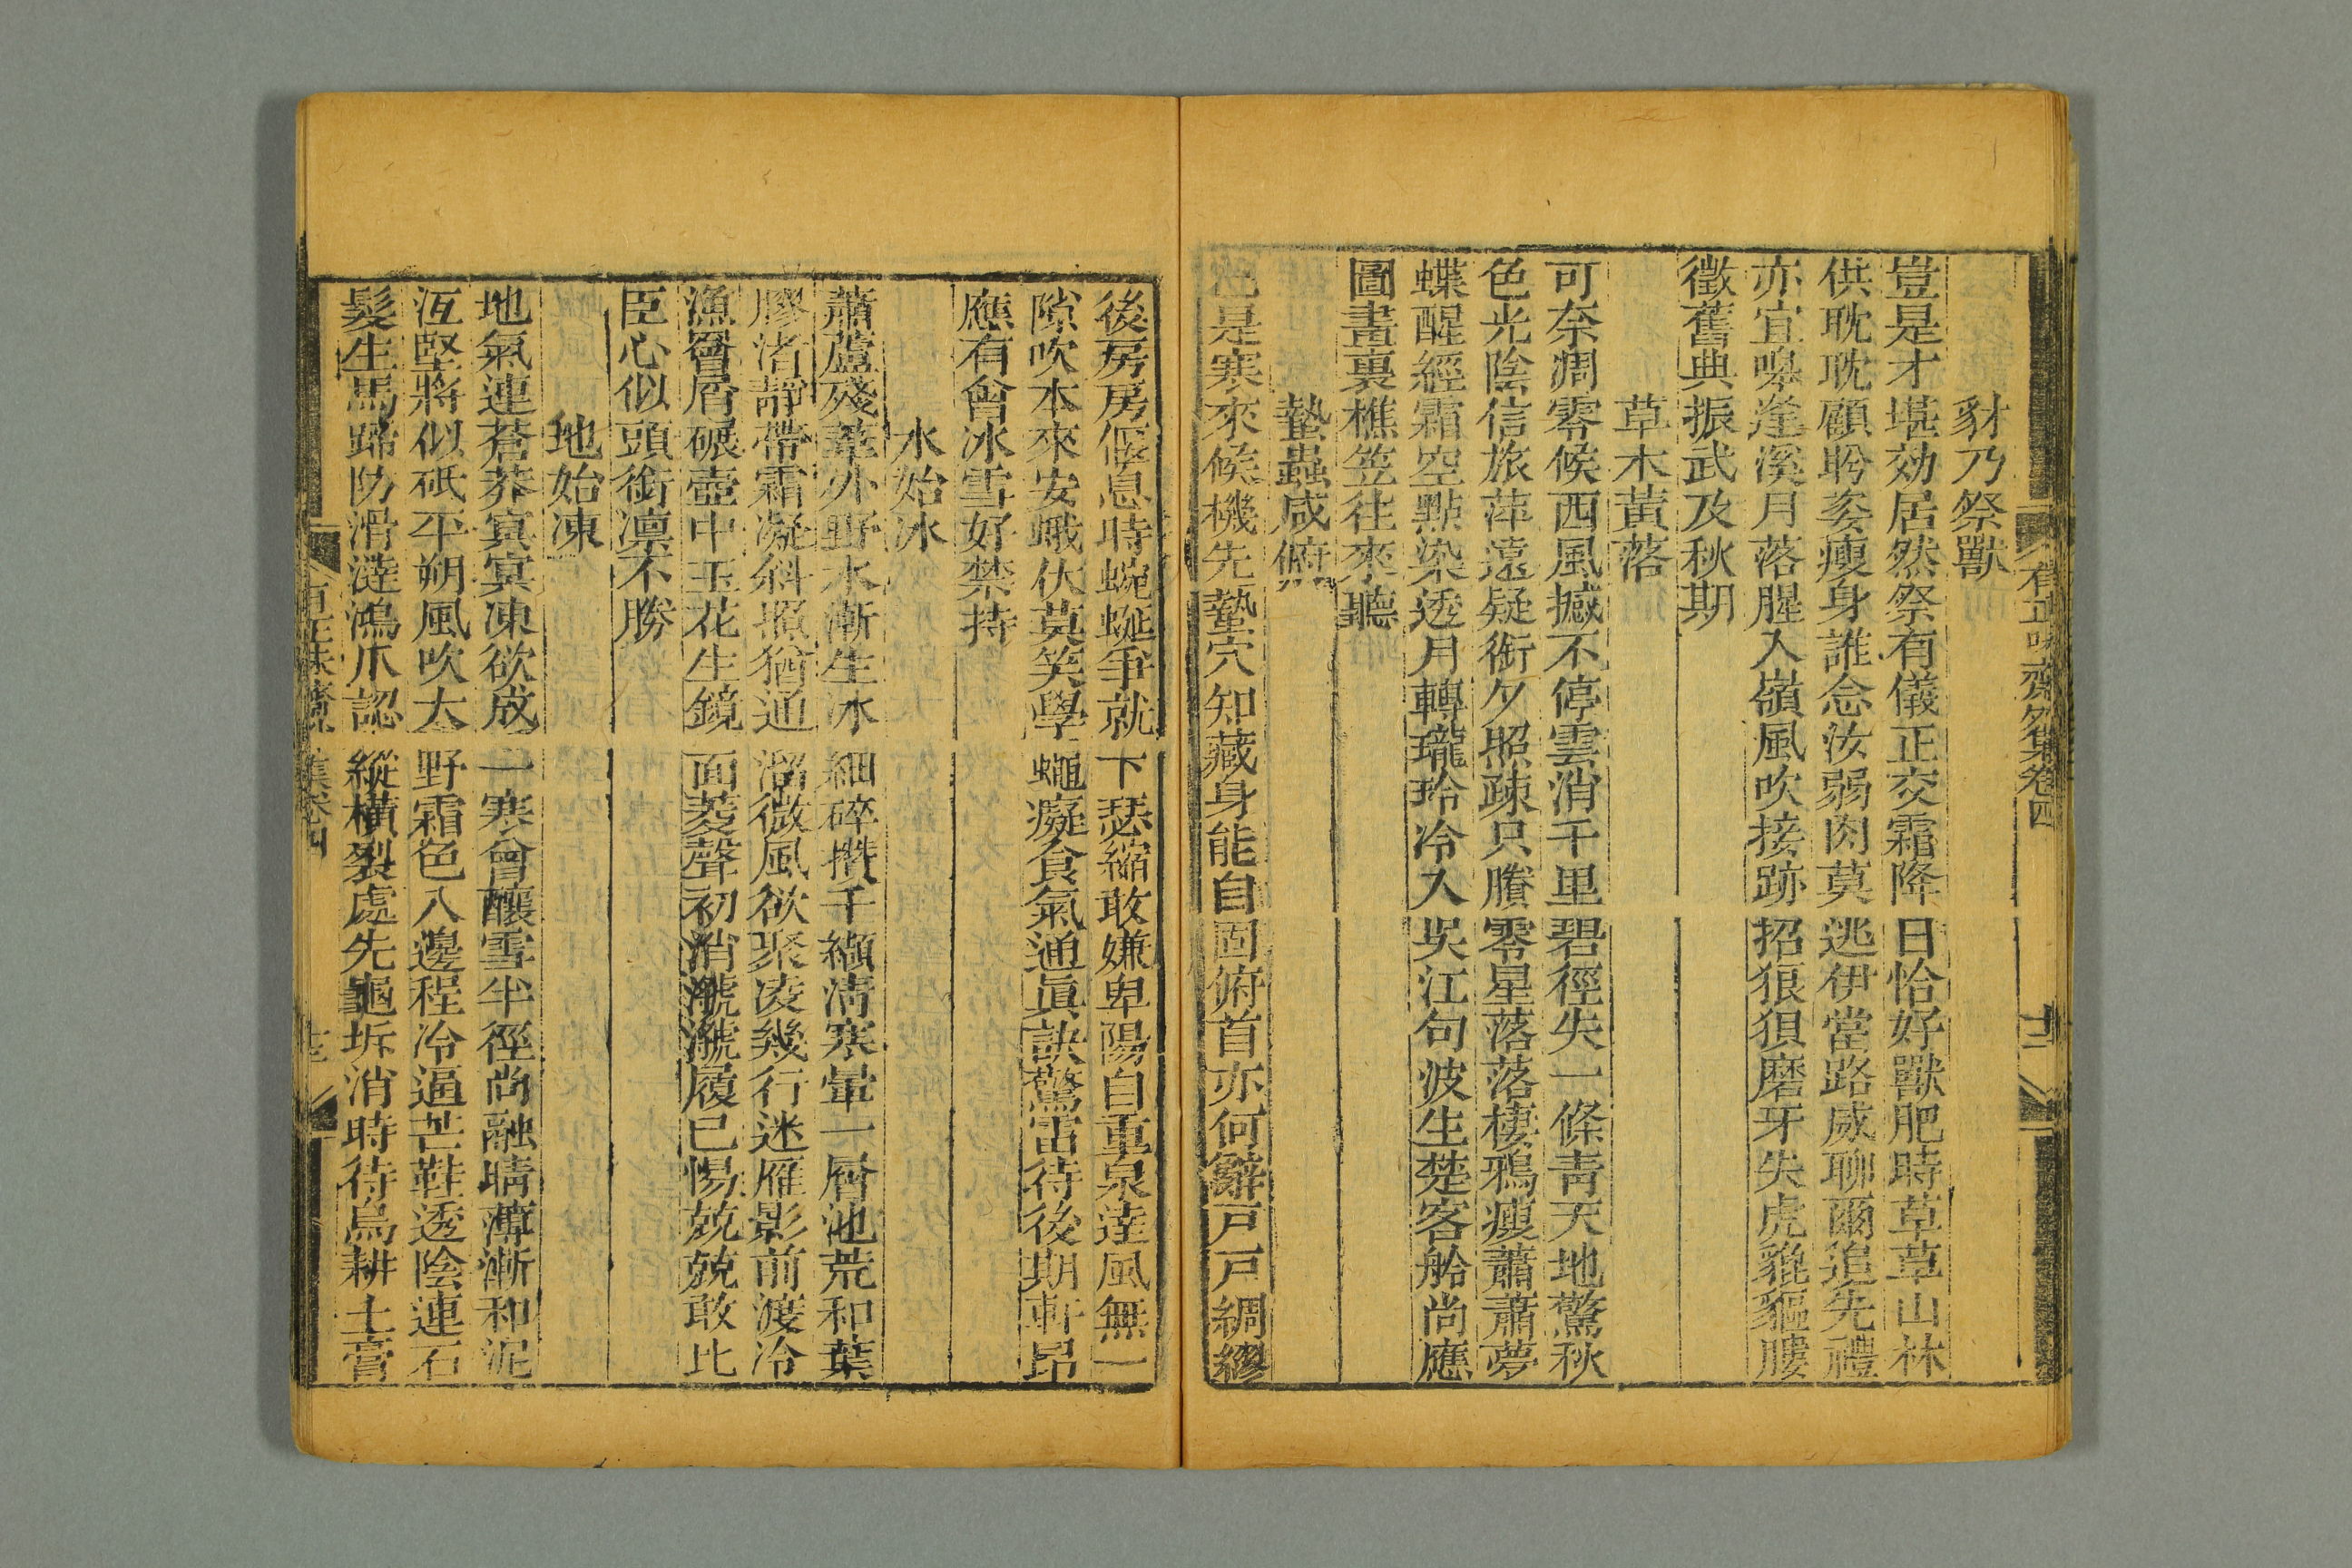 有正味齋外集卷四
十二
豺乃祭獸
豈是才堪効居然祭有儀正交霜降日恰好獸肥時草草山林
供耽耽顧盻姿瘦身誰念汝弱肉莫逃伊當路威聊爾追先禮
亦宜嘷逢溪月落腥入嶺風吹接跡招狼狽磨牙失虎貔貙膢
徵舊典振武及秋期
草木黃落
可奈凋零候西風撼不停雲消千里碧徑失一條靑天地驚秋
色光陰信旅萍遠疑銜夕照疎只賸零星落落棲鴉瘦蕭蕭夢
蝶醒經霜空點染透月轉瓏玲冷入吳江句波生楚客舲尚應
圖畫裏樵笠往來聽
蟄蟲咸俯
已是寒來候機先蟄穴知藏身能自固俯首亦何辭戸戸綢繆
後房房偃息時蜿蜒爭就下瑟縮敢嫌卑陽自重泉達風無一
隙吹本來安蠖伏莫笑學蠅癡食氣通眞訣驚雷待後期軒昂
應有曾冰雪好禁持
水始冰
蕭蘆殘葦外野水漸生冰細碎攢千纈淸寒暈一層池荒和葉
膠渚靜帶霜凝斜照猶通溜微風欲聚凌幾行迷雁影前渡冷
漁罾屑碾壺中玉花生鏡面菱聲初消㶁㶁履已惕兢兢敢比
臣心似頭銜凛不勝
地始凍
地氣連蒼莽寘寘凍欲成一寒曾釀雪半徑尚融晴薄漸和泥
沍堅將似砥平朔風吹大野霜色入邊程冷逼芒鞋透陰連石
髮生馬蹄防滑澾鴻爪認縱橫裂處先龜坼消時待烏耕土膏
集卷四
十三